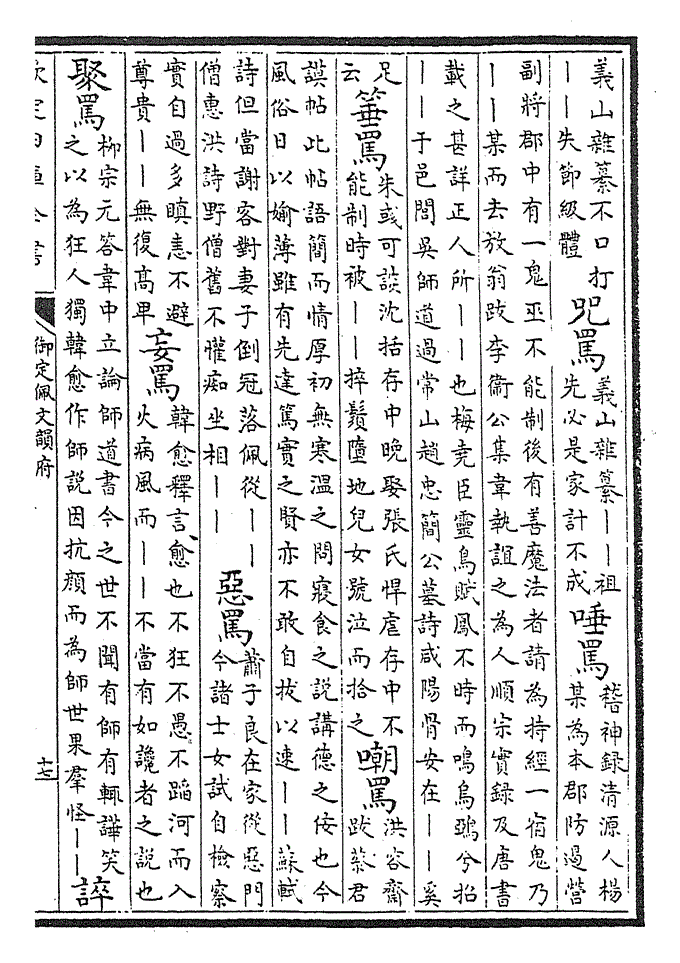 義山雜纂不口打
——失節級體
咒罵
義山雜纂——祖
先必是家計不成
唾罵
稽神録清源人楊
某為本郡防遏營
副將郡中有一鬼巫不能制後有善魔法者請為持經一宿鬼乃
——某而去放翁跋李衞公集韋執誼之為人順宗實録及唐書
載之甚詳正人所——也梅堯臣靈烏賦鳳不時而鳴烏鵶兮招
——于邑閭吳師道過常山趙忠簡公墓詩咸陽骨安在——奚
足
云
箠罵
朱彧可談沈括存中晚娶張氏悍虐存中不
能制時被——捽鬚墮地兒女號泣而拾之
嘲罵
洪容齋
跋蔡君
謨帖此帖語簡而情厚初無寒溫之問寢食之說講德之佞也今
風俗日以媮薄雖有先達篤實之賢亦不敢自拔以速——蘇軾
詩但當謝客對妻子倒冠落佩從——
僧惠洪詩野僧舊不懼痴坐相——
惡罵
蕭子良在家從惡門
今諸士女試自檢察
實自過多瞋恚不避
尊貴——無復高卑
妄罵
韓愈釋言愈也不狂不愚不蹈河而入
火病風而——不當有如讒者之說也
聚罵
柳宗元答韋中立論師道書今之世不聞有師有輒譁笑
之以為狂人獨韓愈作師說因抗顏而為師世果羣怪——
誶
欽定四庫全書
御定佩文韻府
十七